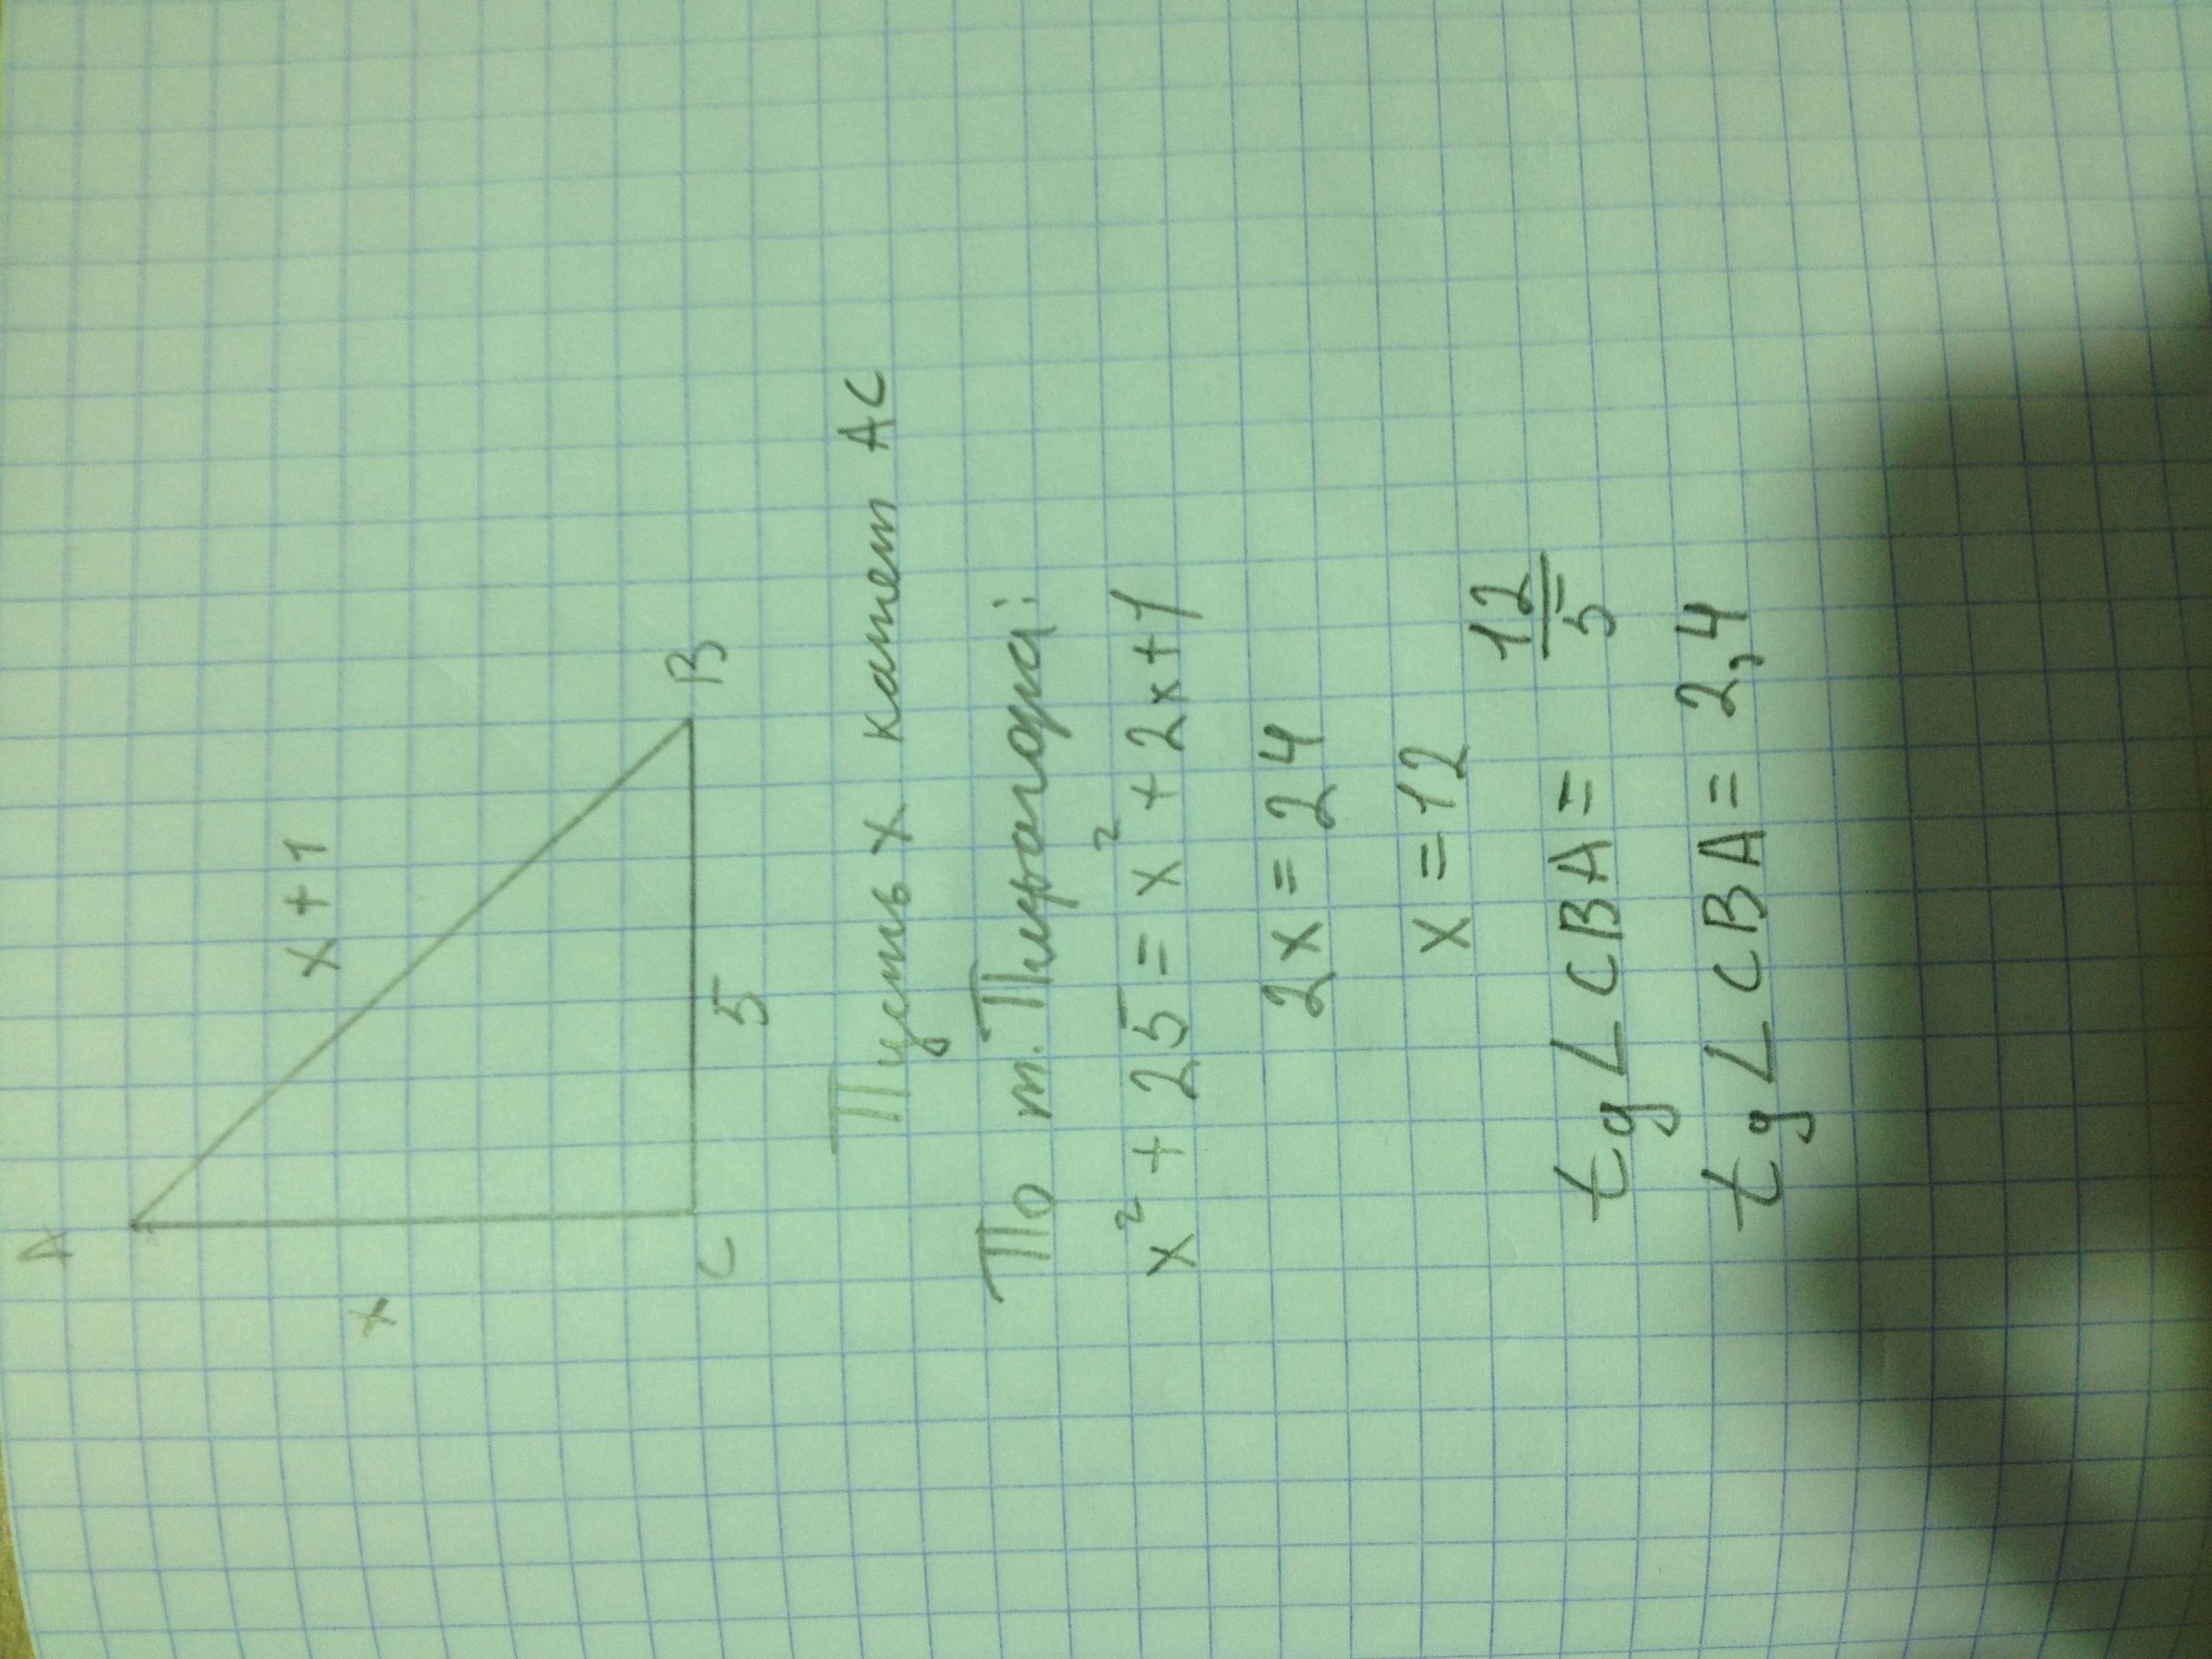 A
x + 1
x
C
5
B
Пусть x катет AC
По т. Пифагора:
x² + 25 = x² + 2x + 1
2x = 24
x = 12
tg ∠CBA = 12/5
tg ∠CBA = 2,4